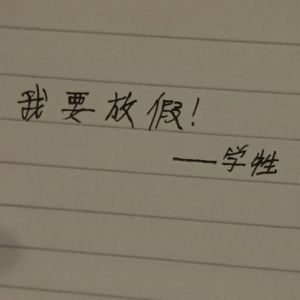 我要放假!
——学牲